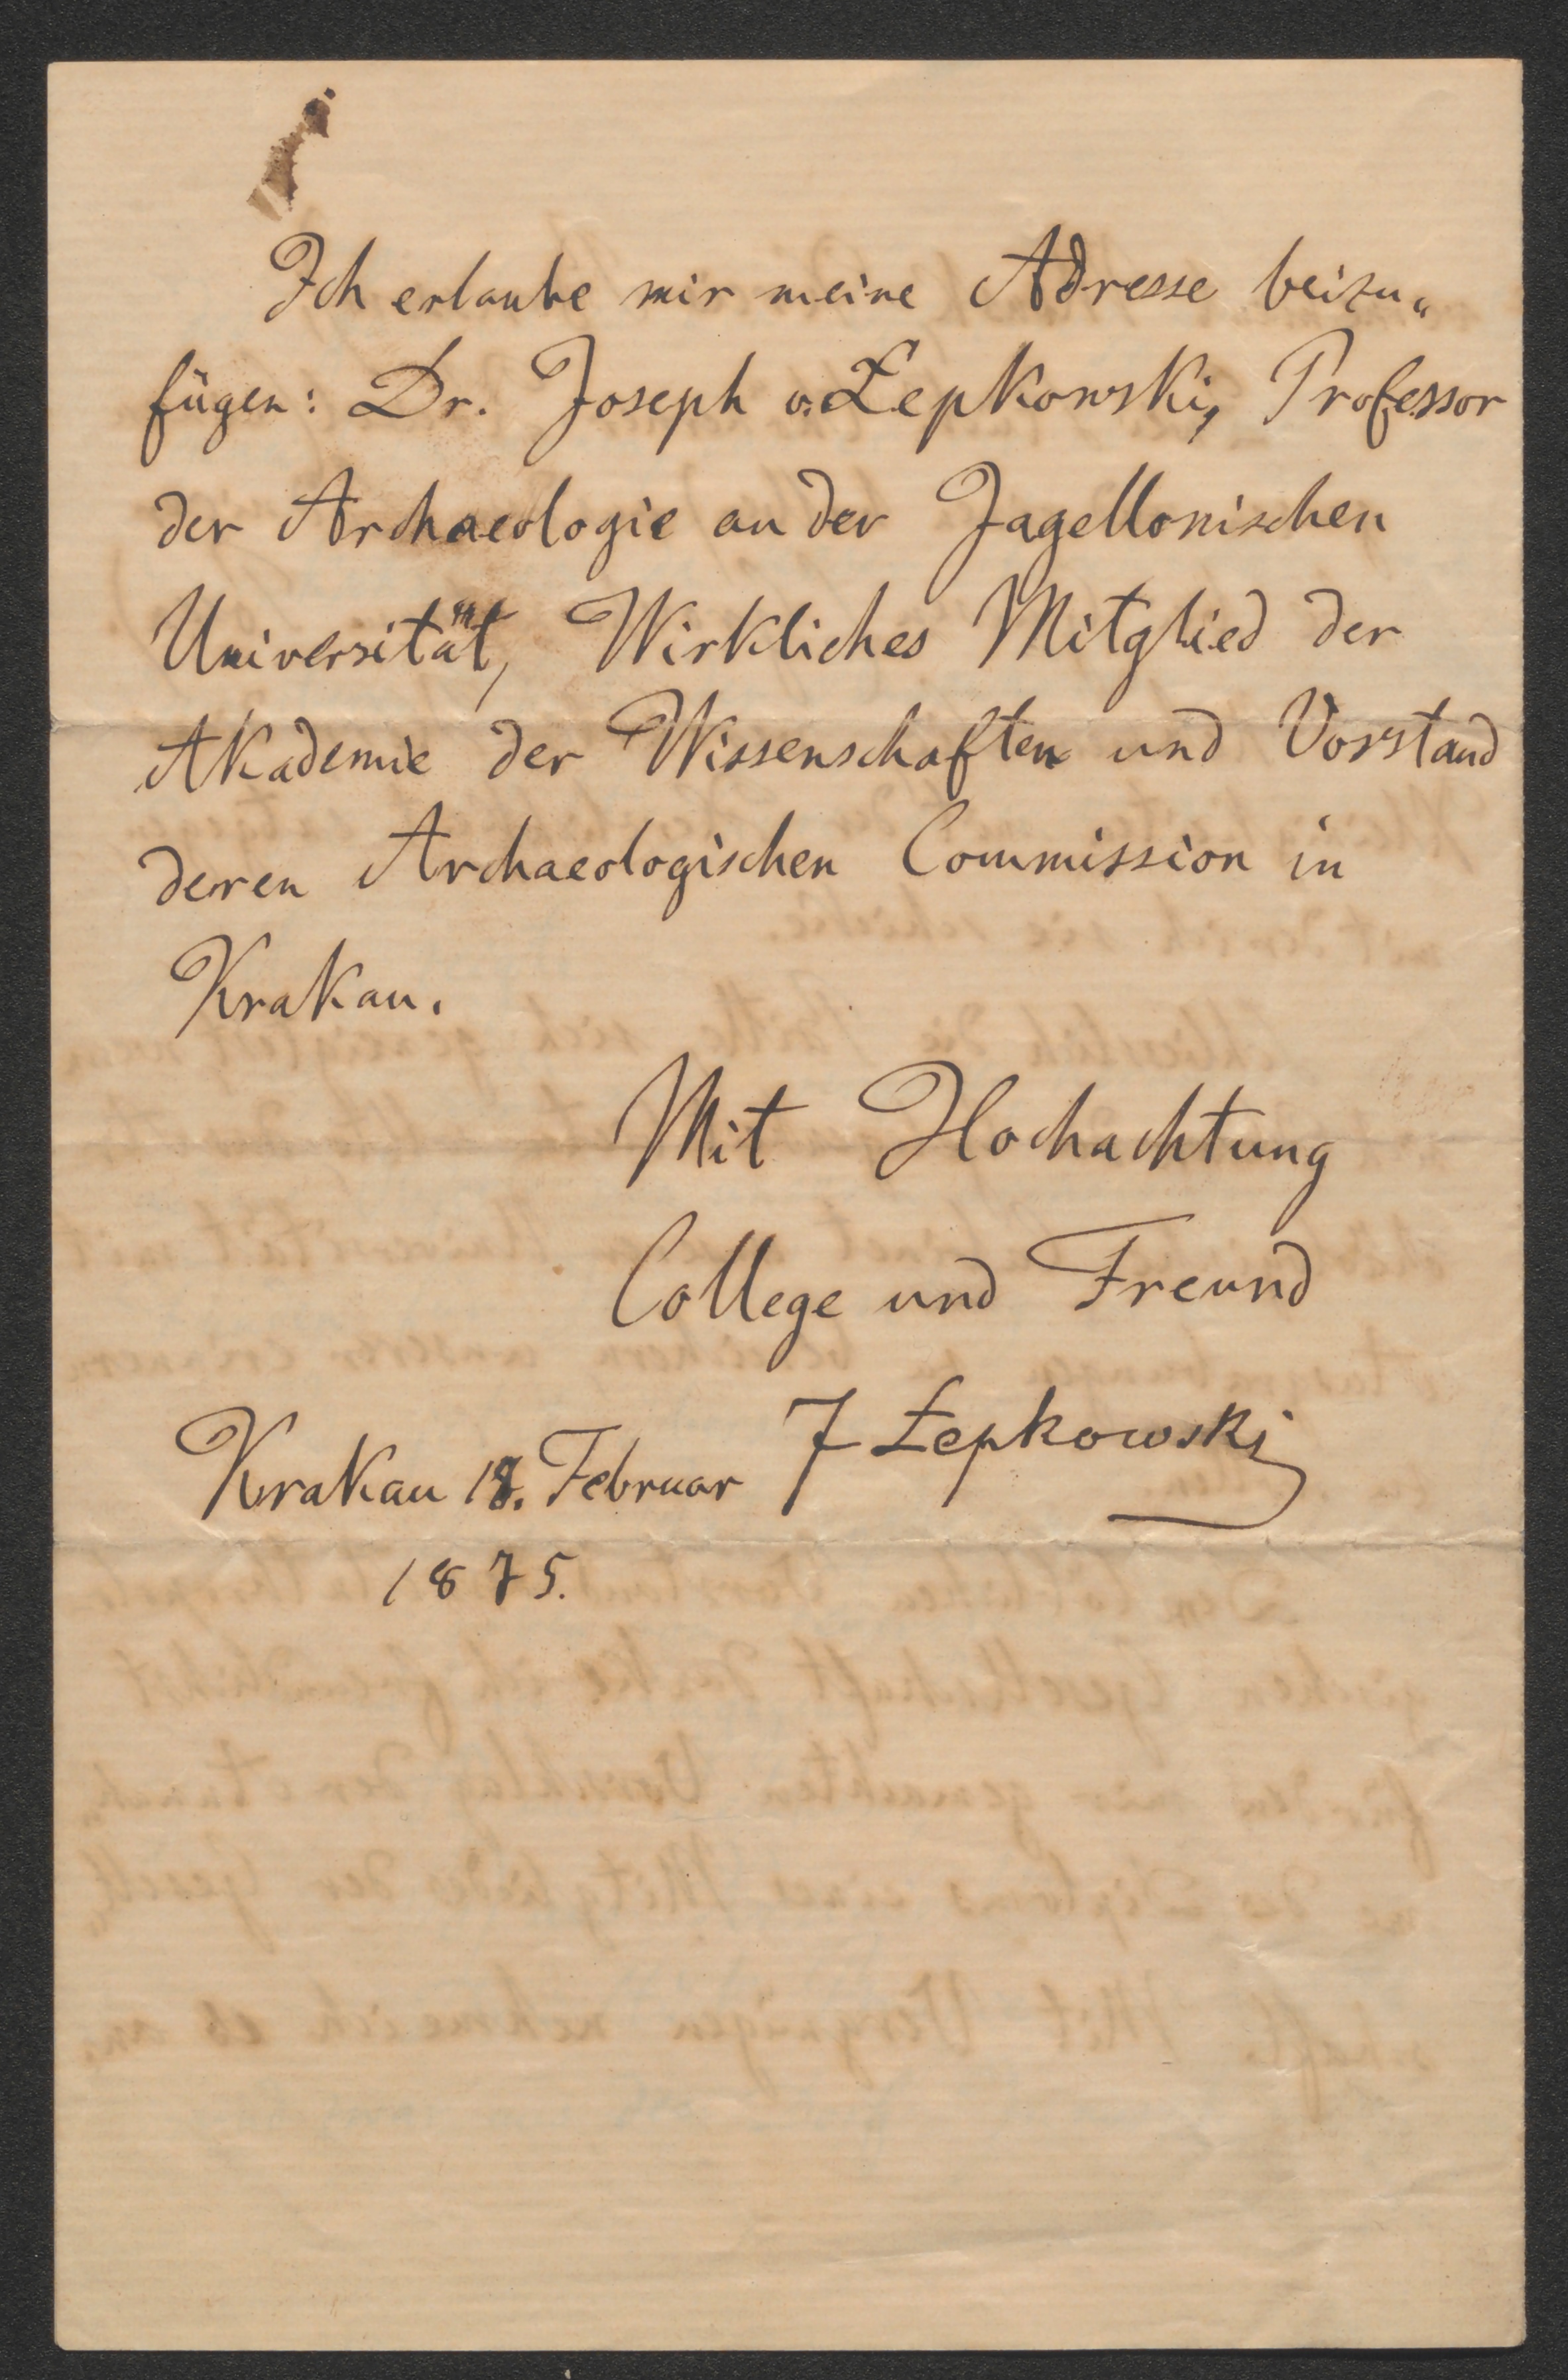 Ich erlaube mir meine Adresse beizu„
fügen: Dr. Joseph v. Łepkowski, Professor
der Archaeologie an der Jagellonischen
Universität, Wirkliches Mitglied der
Akademie der Wissenschaften und Vorstand
deren Archaeologischen Commission in
Krakau.
Mit Hochachtung
College und Freund
J Łepkowski
Krakau 18. Februar
1875.